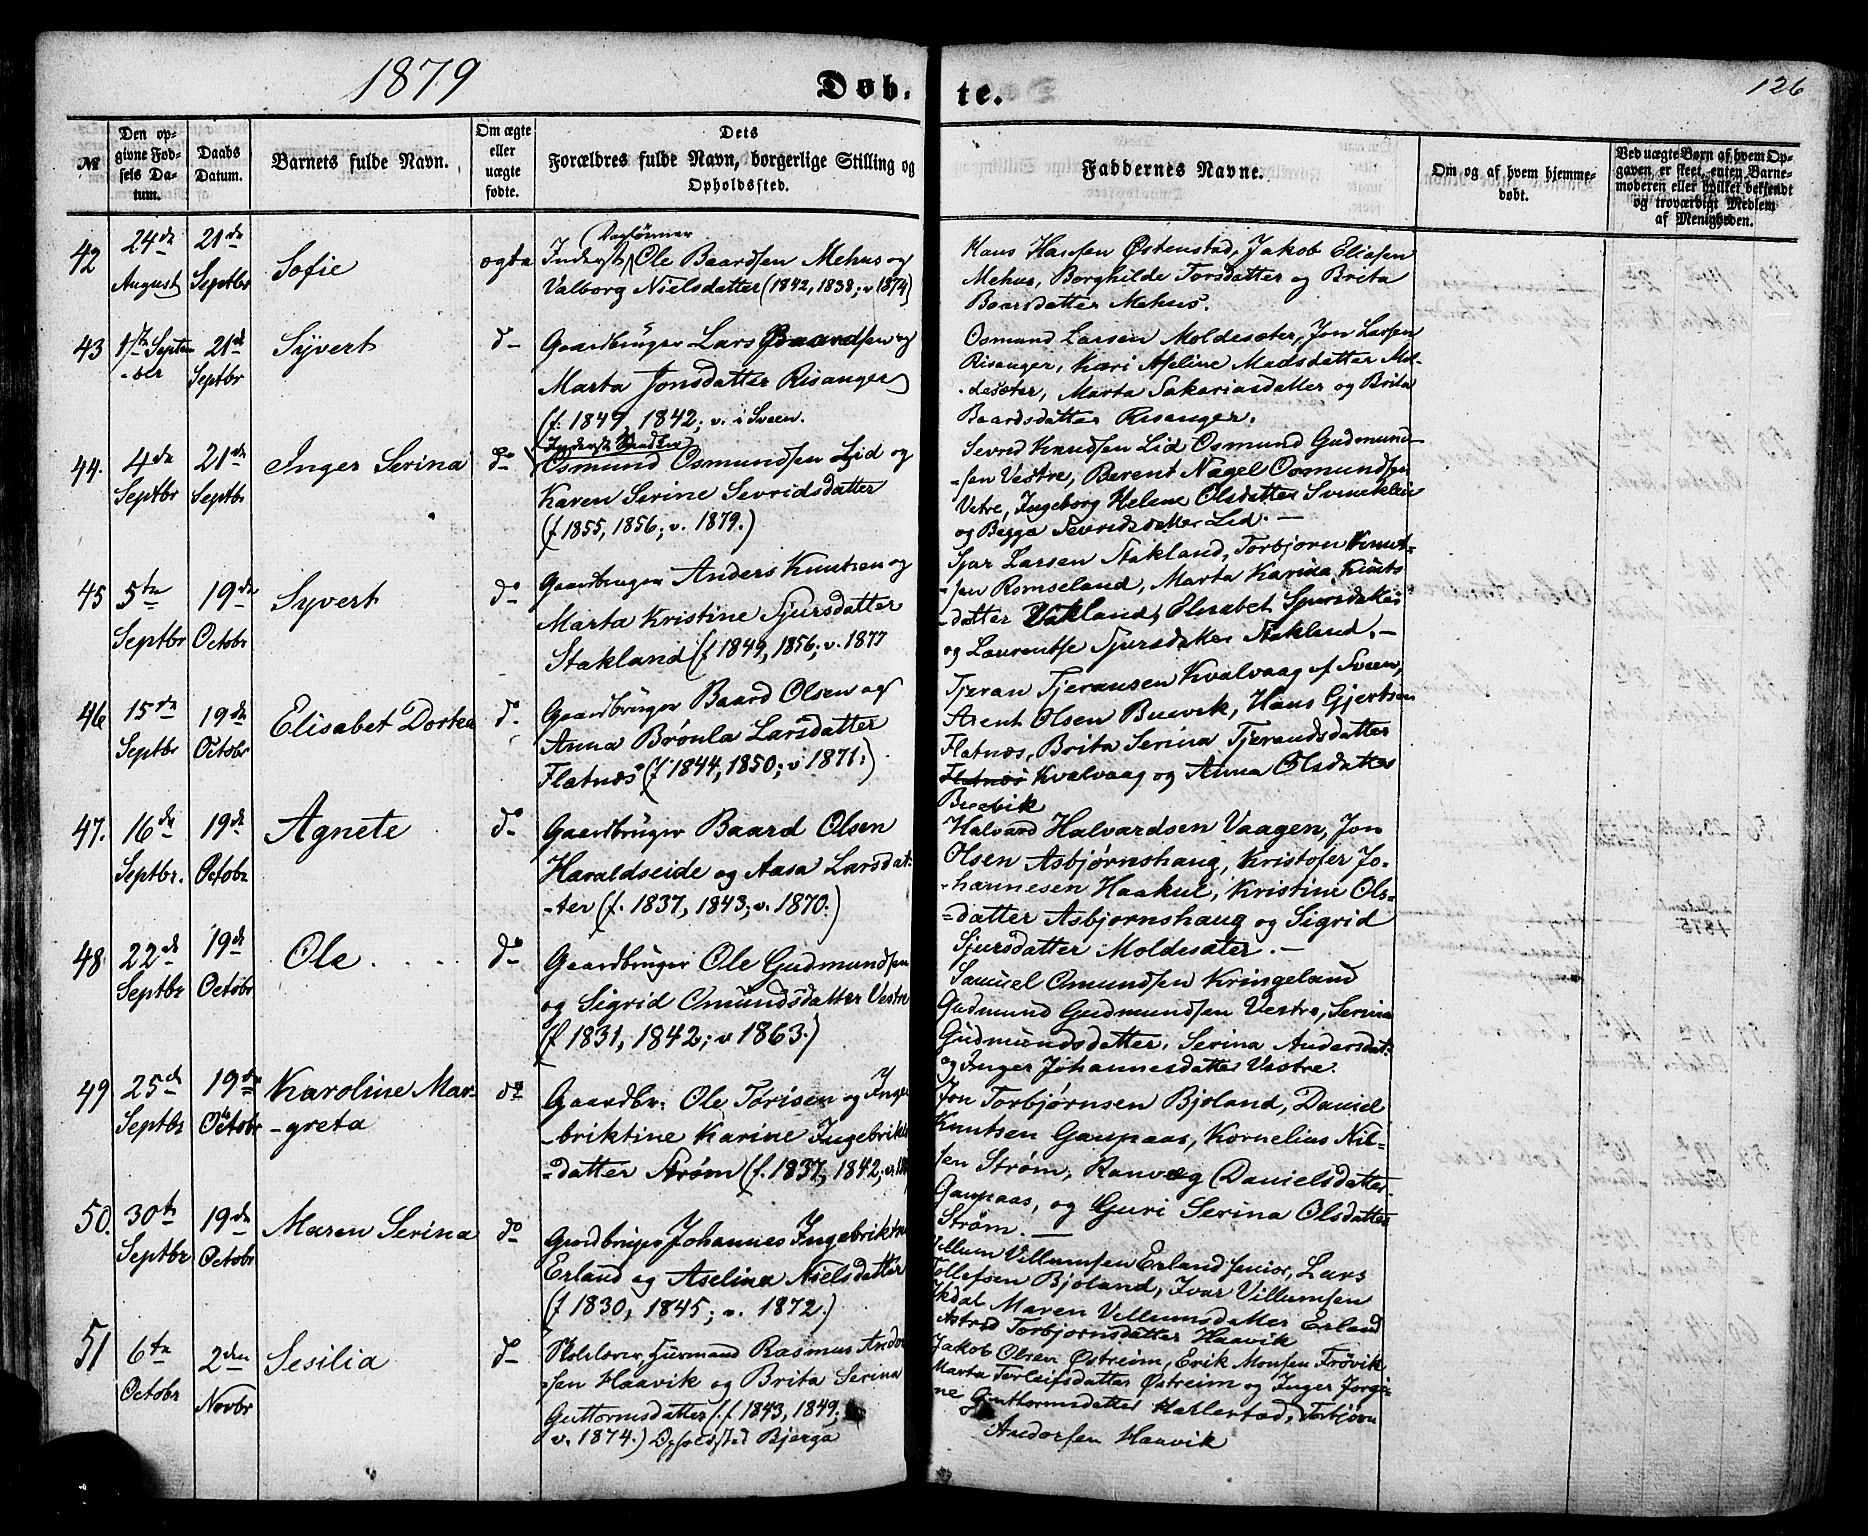 1879
Døb-
te.
126
№
Den op-
givne Fød-
sels Da-
tum.
Daabs
Datum.
Barnets fulde Navn.
Om ægte
eller
uægte
fødte.
Dets
Forældres fulde Navn, borgerlige Stilling og
Opholdssted.
Faddernes Navne.
Om og af hvem hjemme-
døbt.
Ved uægte Børn af hvem Op-
gaven er skeet, enten Barne-
moderen eller hvilket bekjendt
og troværdigt Medlem
af Menigheden.
42
24de
August
21de
Septbr
Sofie
ægta
Inderst Ole Baardsen Mehus og
Valborg Nielsdatter (1842, 1838; v 1874)
Hans Hansen Østenstad, Jakob Eliasen
Mehus, Borghilde Torsdatter og Brita
Baarsdatter Mehus.
43
17de Septem
-ber
21de
Septbr
Syvert
do
Gaardbruger Lars Baardsen og
Marta Jonsdatter Risanger
(f. 1849, 1842; v. i Sveen.
Osmund Larsen Moldesæter, Jon Larsen
Risanger, Kari Aseline Madsdatter Mol-
-desæter, Marta Sakariasdatter og Brita
Baardsdatter Risanger.
44.
4de
Septbr
21de
Septbr
Inger Serina
do
Osmund Osmundsen Lid og
Karen Serine Sevridsdatter
(f 1855, 1856; v. 1879.)
Sevrid Knudsen Lid Osmund Gudmund-
-sen Vestre, Berent Nagel Osmundsen
Vetre, Ingeborg Helene Olsdatter Svineklei
og Begga Sevridsdatter Lid. —
45
5te
Septbr
19de
Octobr
Syvert
do
Gaardbruger Anders Knutsen og
Marta Kristine Sjursdatter
Stakland (f 1849, 1856; v. 1877
Sjur Larsen Stakland, Torbjørn Knut-
-sen Romseland, Marta Karina Knuts
-datter Vakland, Elisabet Sjursdatter
og Laurentse Sjursdatter Stakland. —
46
15de
Septbr
19de
Octobr
Elisabet Dortea
do
Gaardbruger Baard Olsen og
Anna Brønla Larsdatter
Flatnæs (f 1844, 1850; v 1871.)
Tjeran Tjeransen Kvalvaag af Sveen,
Arent Olsen Buevik, Hans Gjertsen
Flatnæs, Brita Serina Tjerandsdatter
Flatnæs Kvalvaag og Anna Olsdatter
Buevik
47.
16de
Septbr.
19de
Octobr
Agnete
do
Gaardbruger Baard Olsen
Haraldseide og Aasa Larsdat-
-ter (f. 1837, 1843; v. 1870.)
Halvard Halvardsen Vaagen, Jon
Olsen Asbjørnshaug, Kristofer Jo-
-hannesen Haakul, Kristine Ols-
-datter Asbjørnshaug og Sigrid
Sjursdatter Moldesæter. —
48
22de
Septbr
19de
Octobr
Ole . . . .
do
Gaardbruger Ole Gudmundsen
og Sigrid Omundsdatter Vestre
(f. 1831, 1842; v 1863.)
Samuel Omundsen Kringeland
Gudmund Gudmundsen Vestre, Serina
Gudmundsdatter, Serina Andersdat-
og Inger Johannesdatter Vestre.
49
25de
Septbr
19de
Octobr
Karoline Mar-
-greta
do
Gaardbr. Ole Torisen og Inge
-briktine Karine Ingebrikts
-datter Strøm (f. 1837, 1842; v.
Jon Torbjørnsen Bjoland, Daniel
Knutsen Gaupaas, Kornelius Nil-
-sen Strøm, Ranvæg Danielsdatter
Gaupaas, og Guri Serina Olsdatter
Strøm. —
50.
30te
Septbr
19de
Octobr
Maren Serina
do
Gardbruger Johannes Ingebriktsen
Erland og Aselina Nielsdatter
(f 1830, 1845; v. 1872.)
Villum Villumsen Erland senior, Lars
Tollefsen Bjoland, Ivar Villumsen
Maren Villumsdatter Erland
Astrid Torbjornsdatter Haavik
51
6te
Octobr
2den
Novbr
Sesilia
do
Skolelærer, Husmand Rasmus Andor
-sen Haavik og Brita Serina
Guttormsdatter (f 1843, 1849;
v. 1874.) Opholdssted Bjerga
Jakob Olsen Østreim, Erik Monsen Frøvik
Marta Torleifsdatter Østreim og Inger Jorgi-
ne Guttormsdatter Hallestad, Torbjørn
Andorsen Haavik